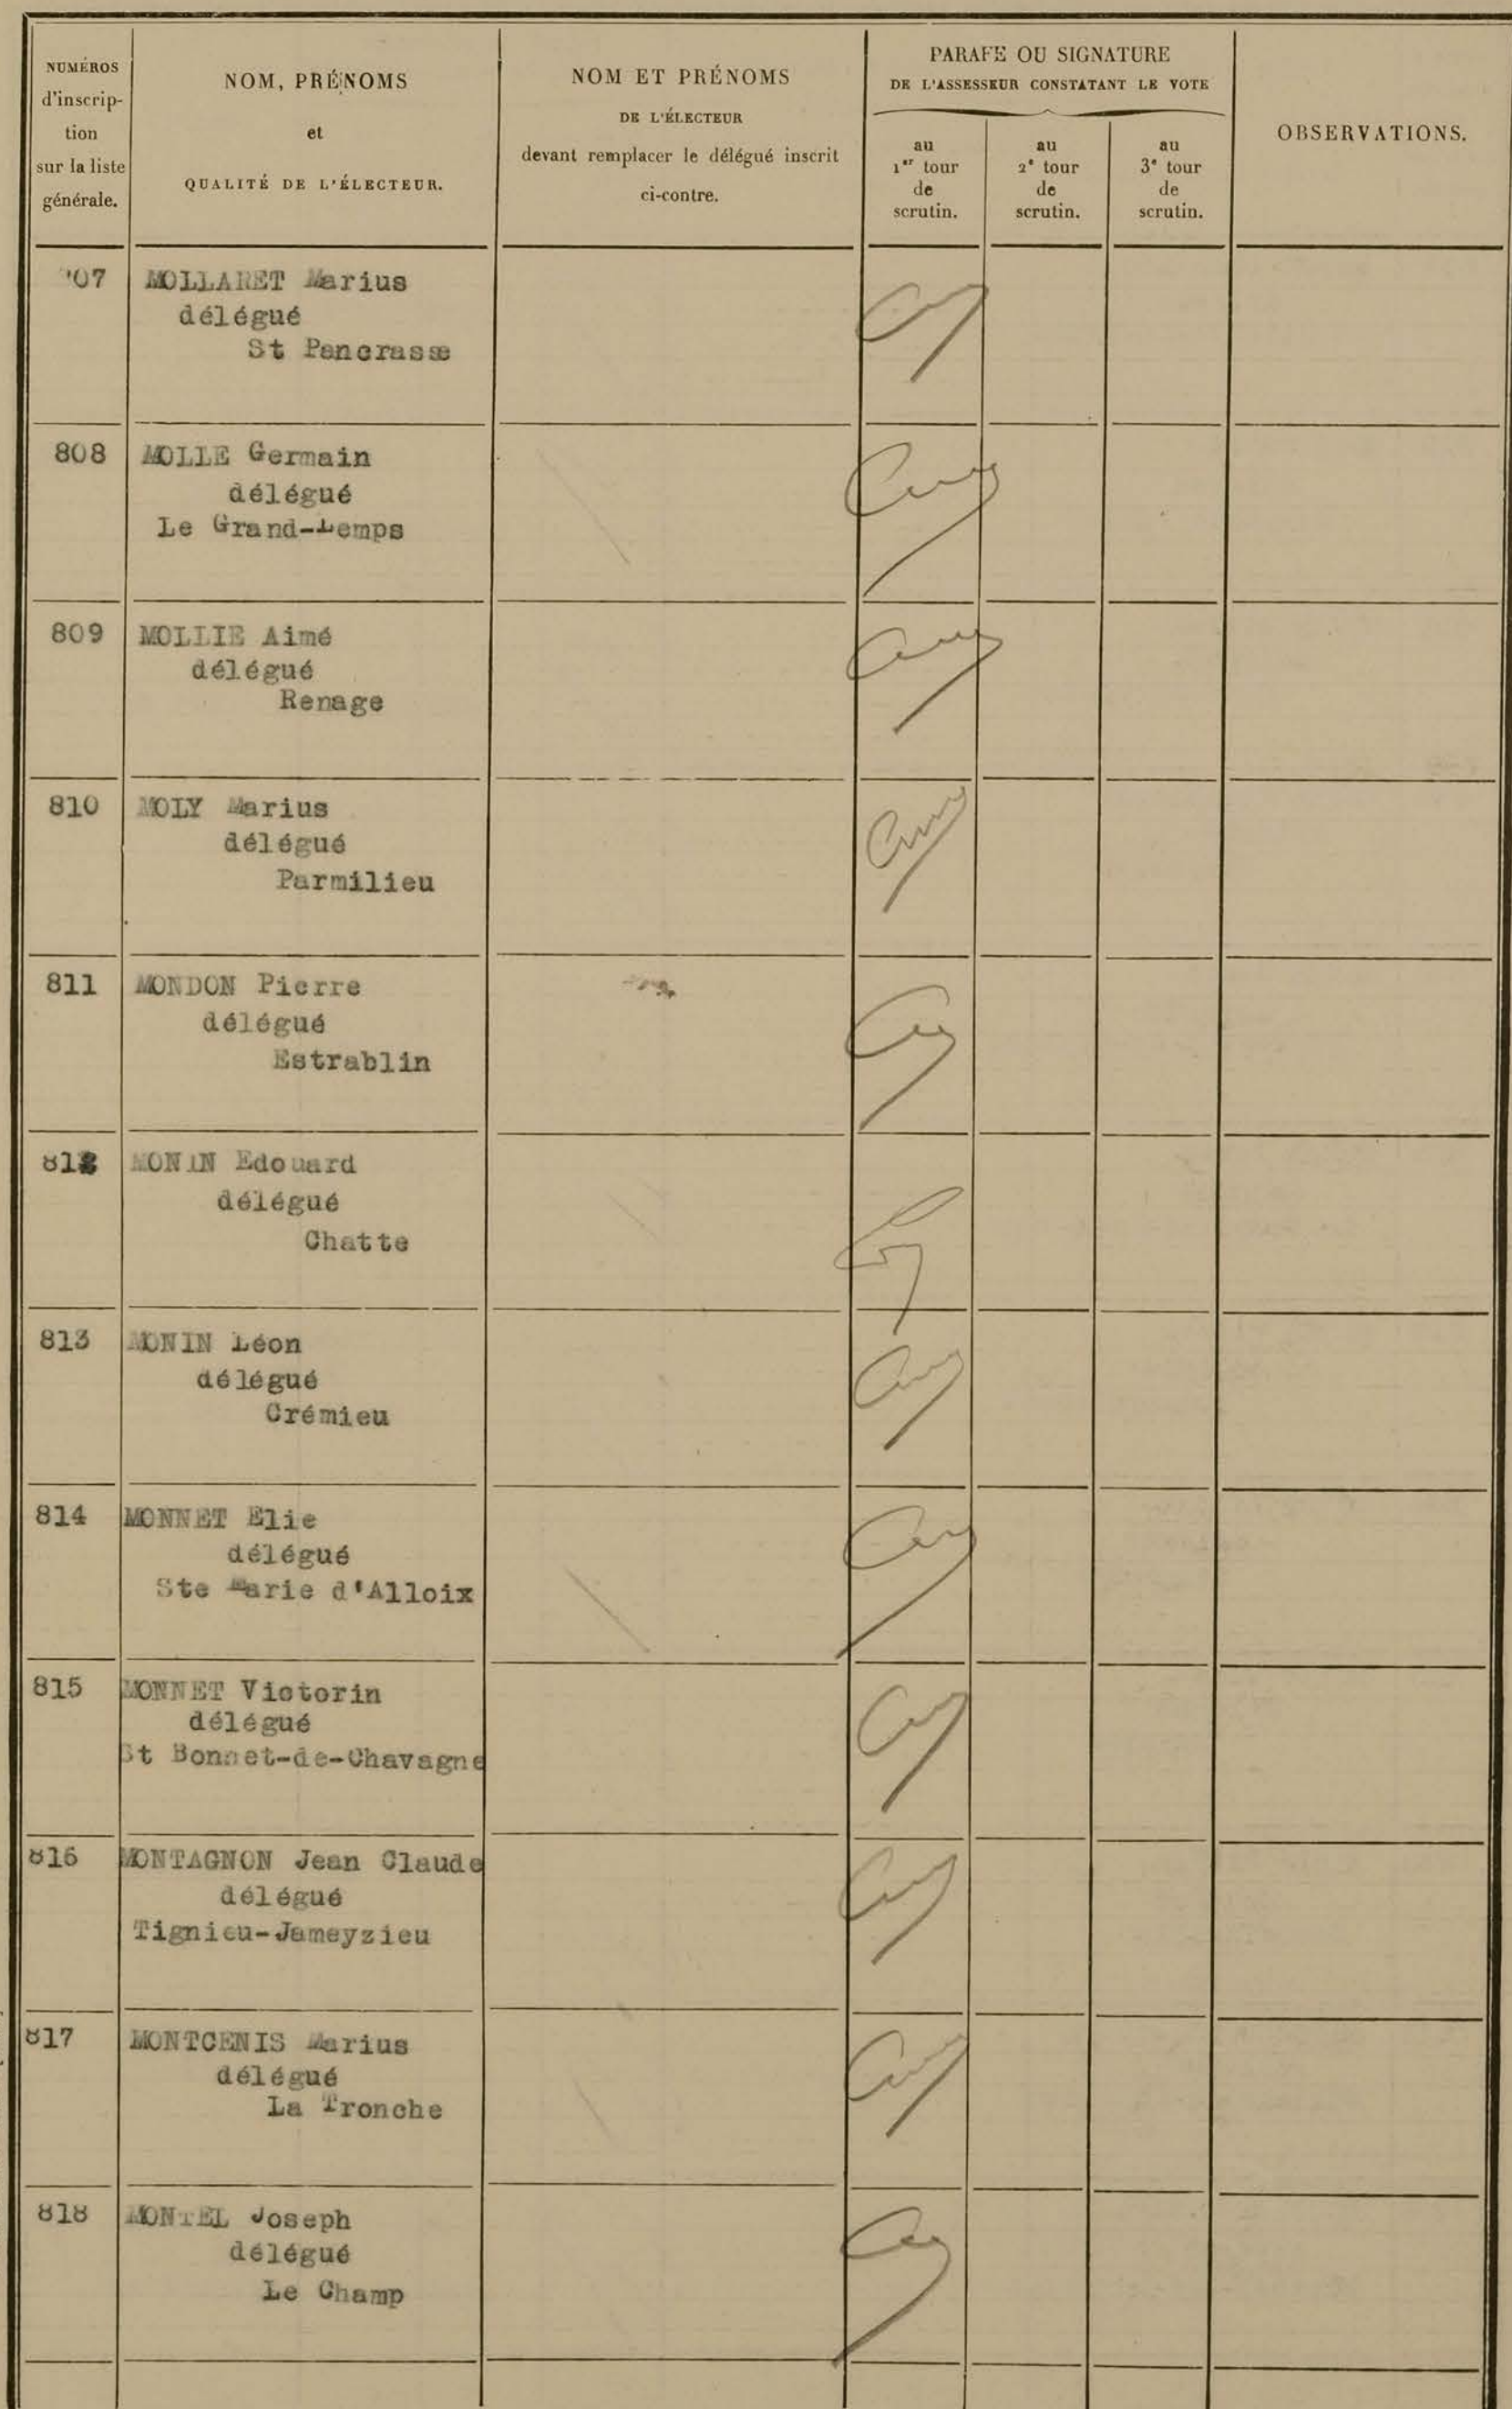 NUMÉROS
d'inscrip-
tion
sur la liste
générale.
NOM, PRÉNOMS
et
QUALITÉ DE L'ÉLECTEUR.
NOM ET PRÉNOMS
DE L'ÉLECTEUR
devant remplacer le délégué inscrit
ci-contre.
PARAFE OU SIGNATURE
DE L'ASSESSEUR CONSTATANT LE VOTE
au
1er tour
de
scrutin.
au
2e tour
de
scrutin.
au
3e tour
de
scrutin.
OBSERVATIONS.
'07 MOLLARET Marius
délégué
St Pancrasse
808 MOLLE Germain
délégué
Le Grand-Lemps
809 MOLLIE Aimé
délégué
Renage
810 MOLY Marius
délégué
Parmilieu
811 MONDON Pierre
délégué
Estrablin
812 MONIN Edouard
délégué
Chatte
813 MONIN Léon
délégué
Crémieu
814 MONNET Elie
délégué
Ste Marie d'Alloix
815 MONNET Victorin
délégué
St Bonnet-de-Chavagne
816 MONTAGNON Jean Claude
délégué
Tignieu-Jameyzieu
817 MONTCENIS Marius
délégué
La Tronche
818 MONTEL Joseph
délégué
Le Champ